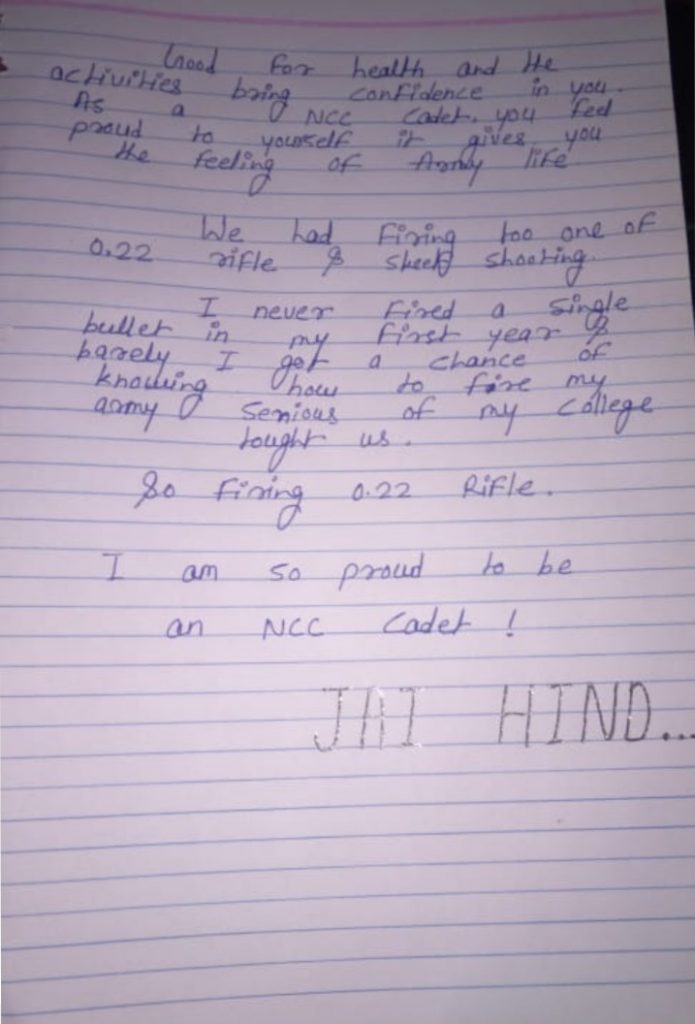 Good for health and the
activities bring confidence in you.
As a NCC Cadet. you feel
proud to yourself it gives you
the feeling of Army life
We had Firing too one of
0.22 rifle & sheet shooting.
I never fired a single
bullet in my first year &
barely I got a chance of
knowing how to fire my
army Senious of my college
tought us.
So Firing 0.22 Rifle.
I am so proud to be
an NCC Cadet !
JAI HIND...